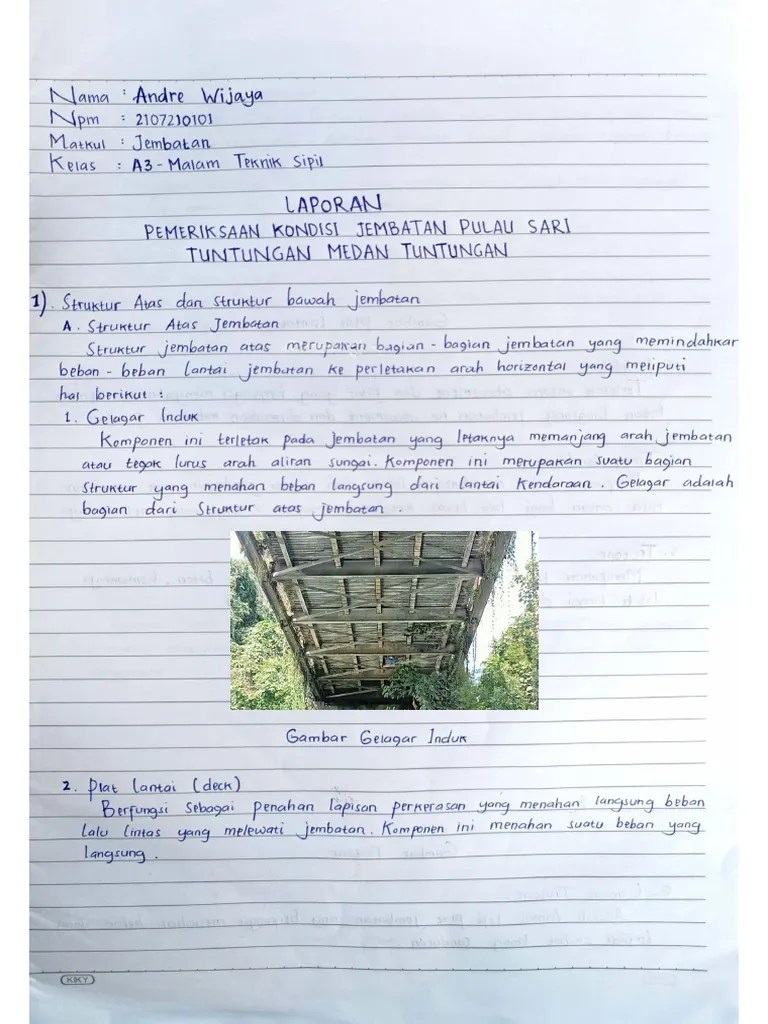 Nama : Andre Wijaya
Npm : 2107210101
Matkul : Jembatan
Kelas : A3 - Malam Teknik Sipil
LAPORAN
PEMERIKSAAN KONDISI JEMBATAN PULAU SARI
TUNTUNGAN MEDAN TUNTUNGAN
1). Struktur Atas dan struktur bawah jembatan
A. Struktur Atas Jembatan
Struktur jembatan atas merupakan bagian - bagian jembatan yang memindahkan
beban - beban lantai jembatan ke perletakan arah horizontal yang meliputi
hal berikut :
1. Gelagar Induk
Komponen ini terletak pada Jembatan yang letaknya memanjang arah jembatan
atau tegak lurus arah aliran sungai. Komponen ini merupakan suatu bagian
Struktur yang menahan beban langsung dari lantai Kendaraan. Gelagar adalah
bagian dari Struktur atas jembatan .
Gambar Gelagar Induk
2. Plat Lantai (deck)
Berfungsi Sebagai penahan lapisan perkerasan yang menahan langsung beban
lalu lintas yang melewati jembatan. Komponen ini menahan suatu beban yang
langsung .
KIKY